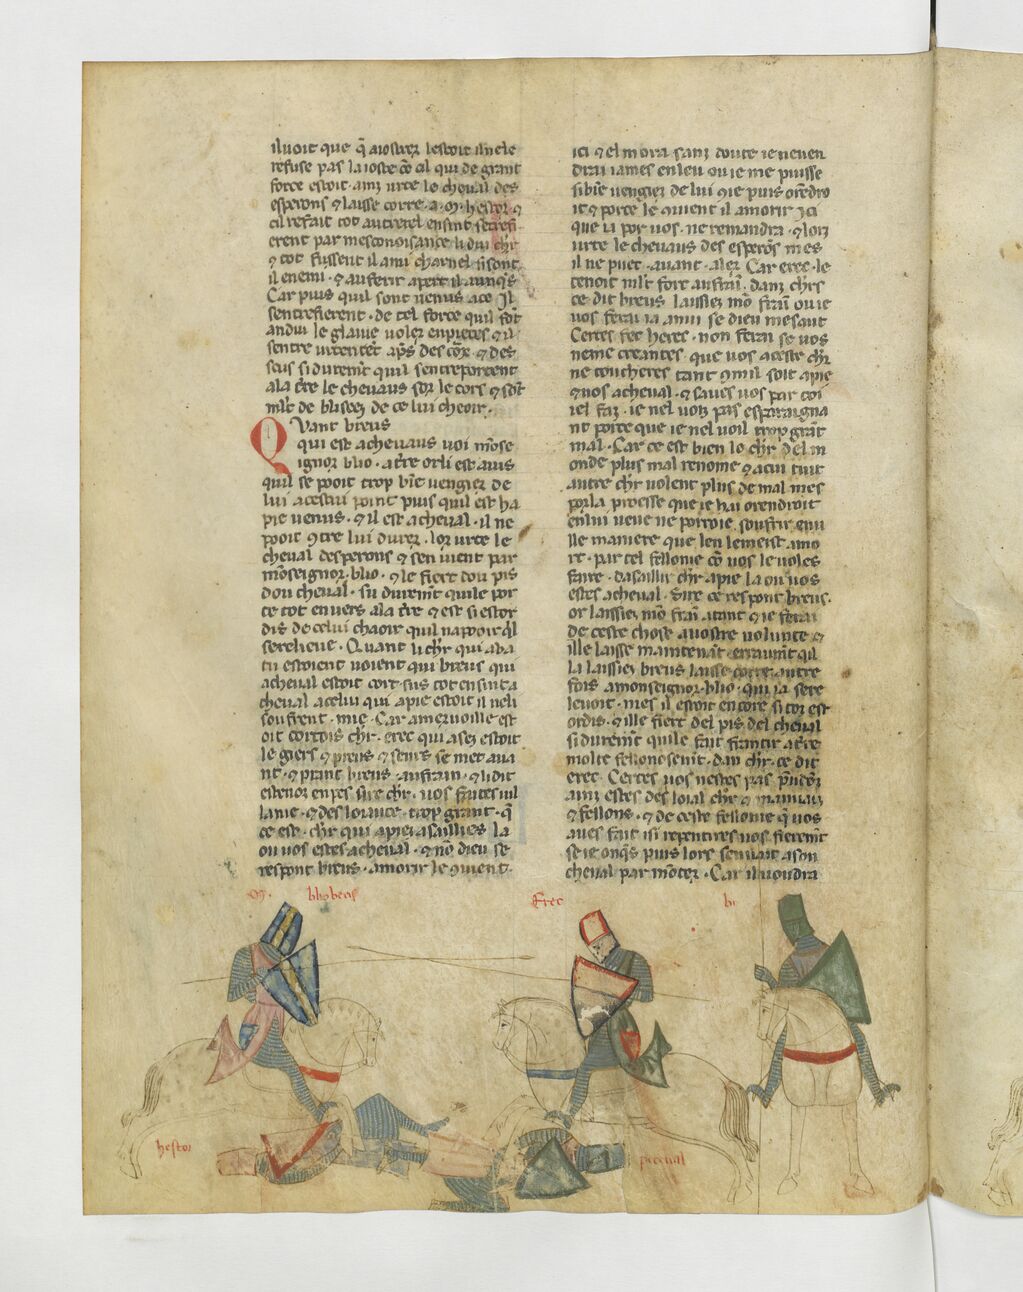 il uoit que q̄ aioster lestoit il nele
refuse pas la ioste cō cil qui de grant
force estoit. ainz urte lo cheual des
esperons ⁊ laisse corre. a. m. hestor ⁊
cil refait tot autretel ensint
erent par mesconoisance li dui chr̄
⁊ tot fussent il ami charnel
il enemi. ⁊ au ferir apert il
Car puis quil sont uenus a ce Il
sentrefierent. de tel force quil font
andui le glaiue uoler en pieces ⁊ il
sentre urtent ap̄s des cors ⁊ des
scus si durem̄t quil sentreportent
a la t̄re le cheuaus sor le cors ⁊ sōt
ml̄t de blisez de ce lui cheoir.
Quant breus
qui est acheuaus uoi mōse
ignor blio. a t̄re or li est auis
quil se pooit trop biē uengier de
lui a cestui point puis quil est ha
pie uenus. ⁊ il est acheual. il ne
pooit 9tre lui durer. lor urte le
cheual desperons ⁊ sen uient par
mōseignor. blio. ⁊ le fiert dou pis
dou cheual. si durem̄t quile por
te tot enuers a la t̄re ⁊ est si estor
dis de celui chaoir quil na pooir q̄l
se relieue. Quant li chr̄ qui aba
tu estoient uoient qui breus qui
acheual estoit cort sus tot ensint a
cheual a celui qui apie estoit il neli
soufrent. mie. Car a meruoille est
oit cortois chr̄. erec qui asez estoit
legiers ⁊ preus ⁊ se met aua
nt. ⁊ prant breus au frain. ⁊ li dit
estenor en pes sire chr̄. uos faites uil
lanie. ⁊ desloiauté trop grant. q̄
ce est. chr̄ qui apie asaillies la
ou uos estes acheual. ⁊ nō dieu se
respont breus. amorir le 9uient.
ici ⁊ el mora sanz doute ie neuen
drai iames en leu ou ie me puisse
si biē uengier de lui 9ie puis orēdro
it ⁊ porce le 9uient il amorir ici
que ia por uos. ne remandra. ⁊ lors
urte le cheuaus des esperōs mes
il ne puet. auant. aler Car erec. le
tenoit ml̄t fort au frain. danz chr̄s
ce dit breus laissiez mō frain ou ie
uos ferai ia anui se dieu me saut
Certes fet heres. non ferai se uos
neme creantes que uos a ceste chr̄
ne toucheres tant 9mil soit apie
⁊ uos acheual. ⁊ saues uos par coi
iel faz. ie nel uois pas esparaigna
nt porce que ie nel uoil trop grāt
mal. Car ce est bien lo chr̄ del m
onde plus mal renome ⁊ a cui tuit
autre chr̄ uolent plus de mal mes
por la proesse que ie hai orendroit
en lui ueue ne porroie soufrir en nu
lle maniere que len le meist a mo
rt. par tel fellonie cō uos le uoles
faire. dasaillir chr̄ apie la ou uos
estes acheual. sire ce respont breus.
or laissiez mō frain atant ⁊ ie ferai
de ceste chose a uostre uolunte ⁊
ille laisse maintenāt erraum̄t q̄l
la laissiez breus laisse corre autre
fois a monseignor. blio. qui ia sere
leuoit. mes il estoit encore si tot est
ordis. ⁊ ille fiert del pis del cheual
si durem̄t quile fait flatir a t̄re
molt felloness̄mt. dan chr̄. ce dit
erec. Certes uos nestes pas
ainz estes desloial chr̄ ⁊ mauuaiz
⁊ fellons. ⁊ de ceste fellonie q̄ uos
aues fait isi repentires uos fierem̄t
se ie onq̄s puis lors senuait a son
cheual par mōter. Car il uoudra
m. bliobens
Erec
br
hestor
perceual